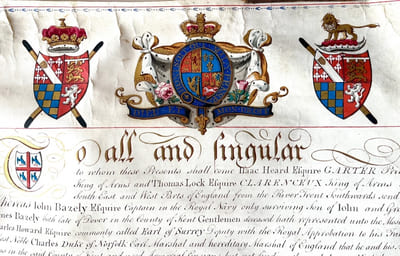 DIEU ET MON DROIT
To all and Singular
to whom these Presents shall come Isaac Heard Esquire GARTER Prin
King of Arms and Thomas Lock Esquire CLARENCEUX King of Arms
South East and West Parts of England from the River Trent Southwards send
Whereas John Bazely Esquire Captain in the Royal Navy only surviving Son of John and Gra
mes Bazely both late of Dover in the County of Kent Gentlemen deceased hath represented unto the Mos
Charles Howard Esquire commonly called Earl of Surrey Deputy with the Royal Approbation to his Fat
ost Noble Charles Duke of Norfolk Earl Marshal and hereditary Marshal of England that he and his